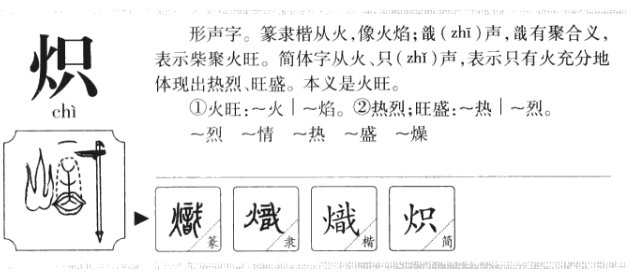 炽
chì
形声字。篆隶楷从火,像火焰;戠(zhī)声,戠有聚合义,
表示柴聚火旺。简体字从火、只(zhǐ)声,表示只有火充分地
体现出热烈、旺盛。本义是火旺。
①火旺:~火｜~焰。②热烈;旺盛:~热｜~烈。
~烈 ~情 ~热 ~盛 ~燥
熾 篆
熾 隶
熾 楷
炽 简